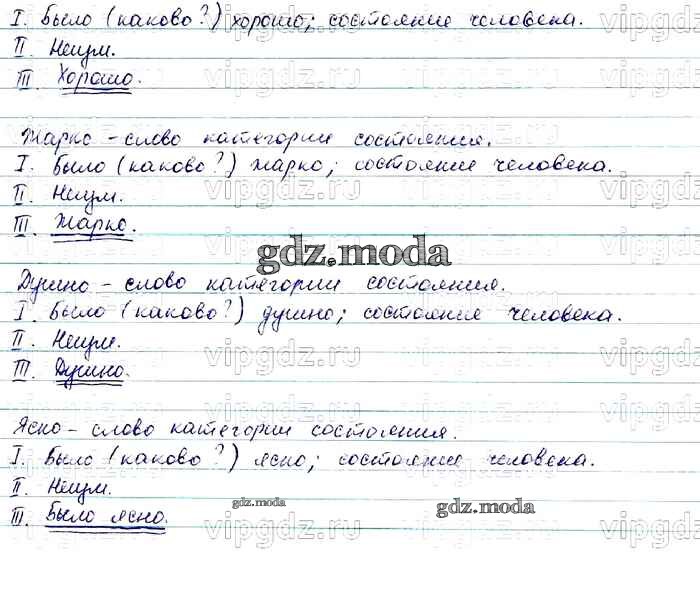 I. Было (каково?) хорошо; состояние человека.
II. Неизм.
III. Хорошо.
Жарко – слово категории состояния.
I. Было (каково?) жарко; состояние человека.
II. Неизм.
III. Жарко.
gdz.moda
Душно – слово категории состояния.
I. Было (каково?) душно; состояние человека.
II. Неизм.
III. Душно.
Ясно – слово категории состояния.
I. Было (каково?) ясно; состояние человека.
II. Неизм.
gdz.moda
gdz.moda
III. Было ясно.
vipgdz.ru